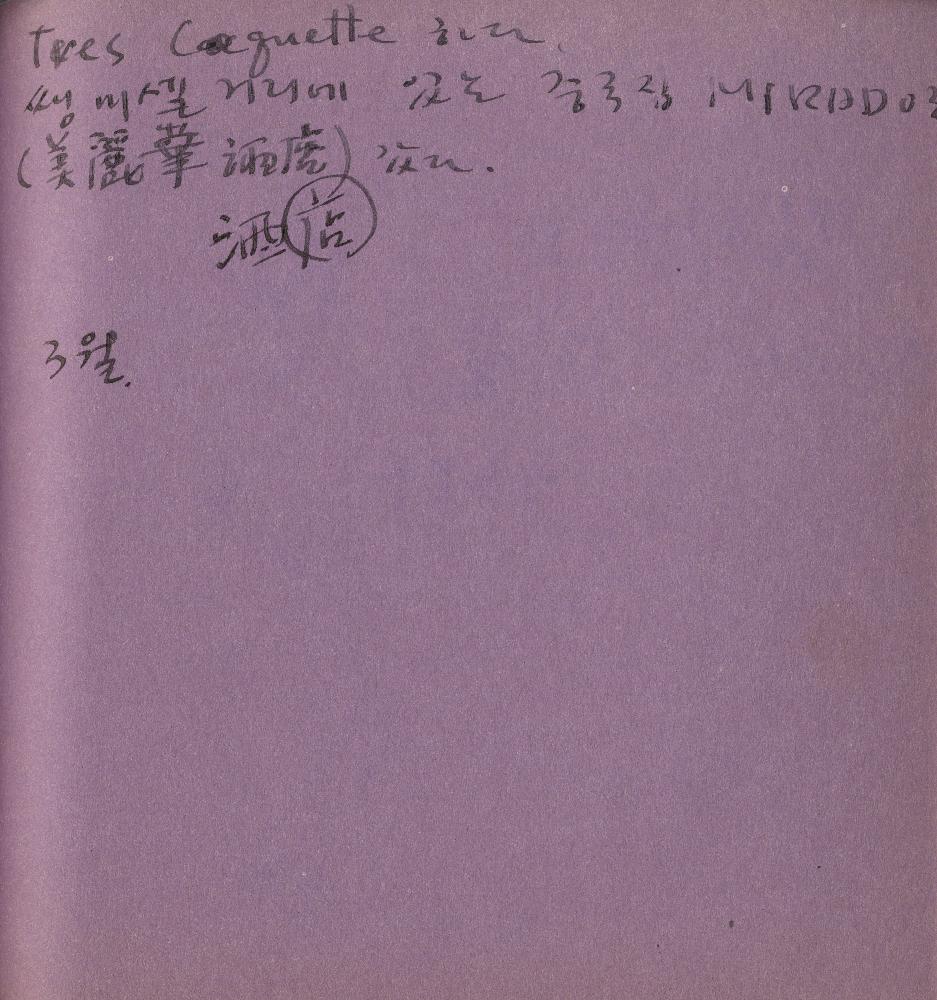 Tres Coquette 하다.
쌩 미셸 거리에 있는 중국집
(美麗華酒店) 갔다.
酒店
3월.